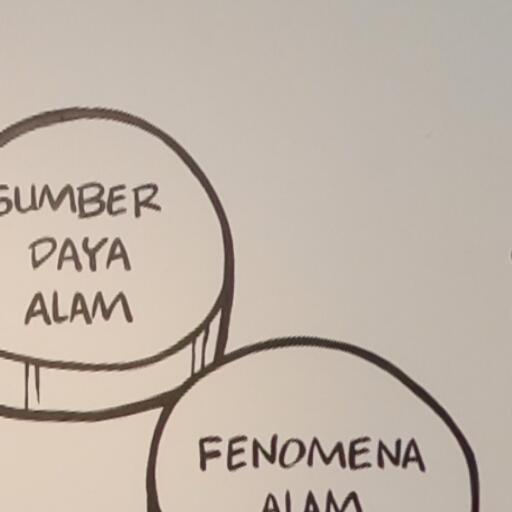 SUMBER
DAYA
ALAM
FENOMENA
ALAM